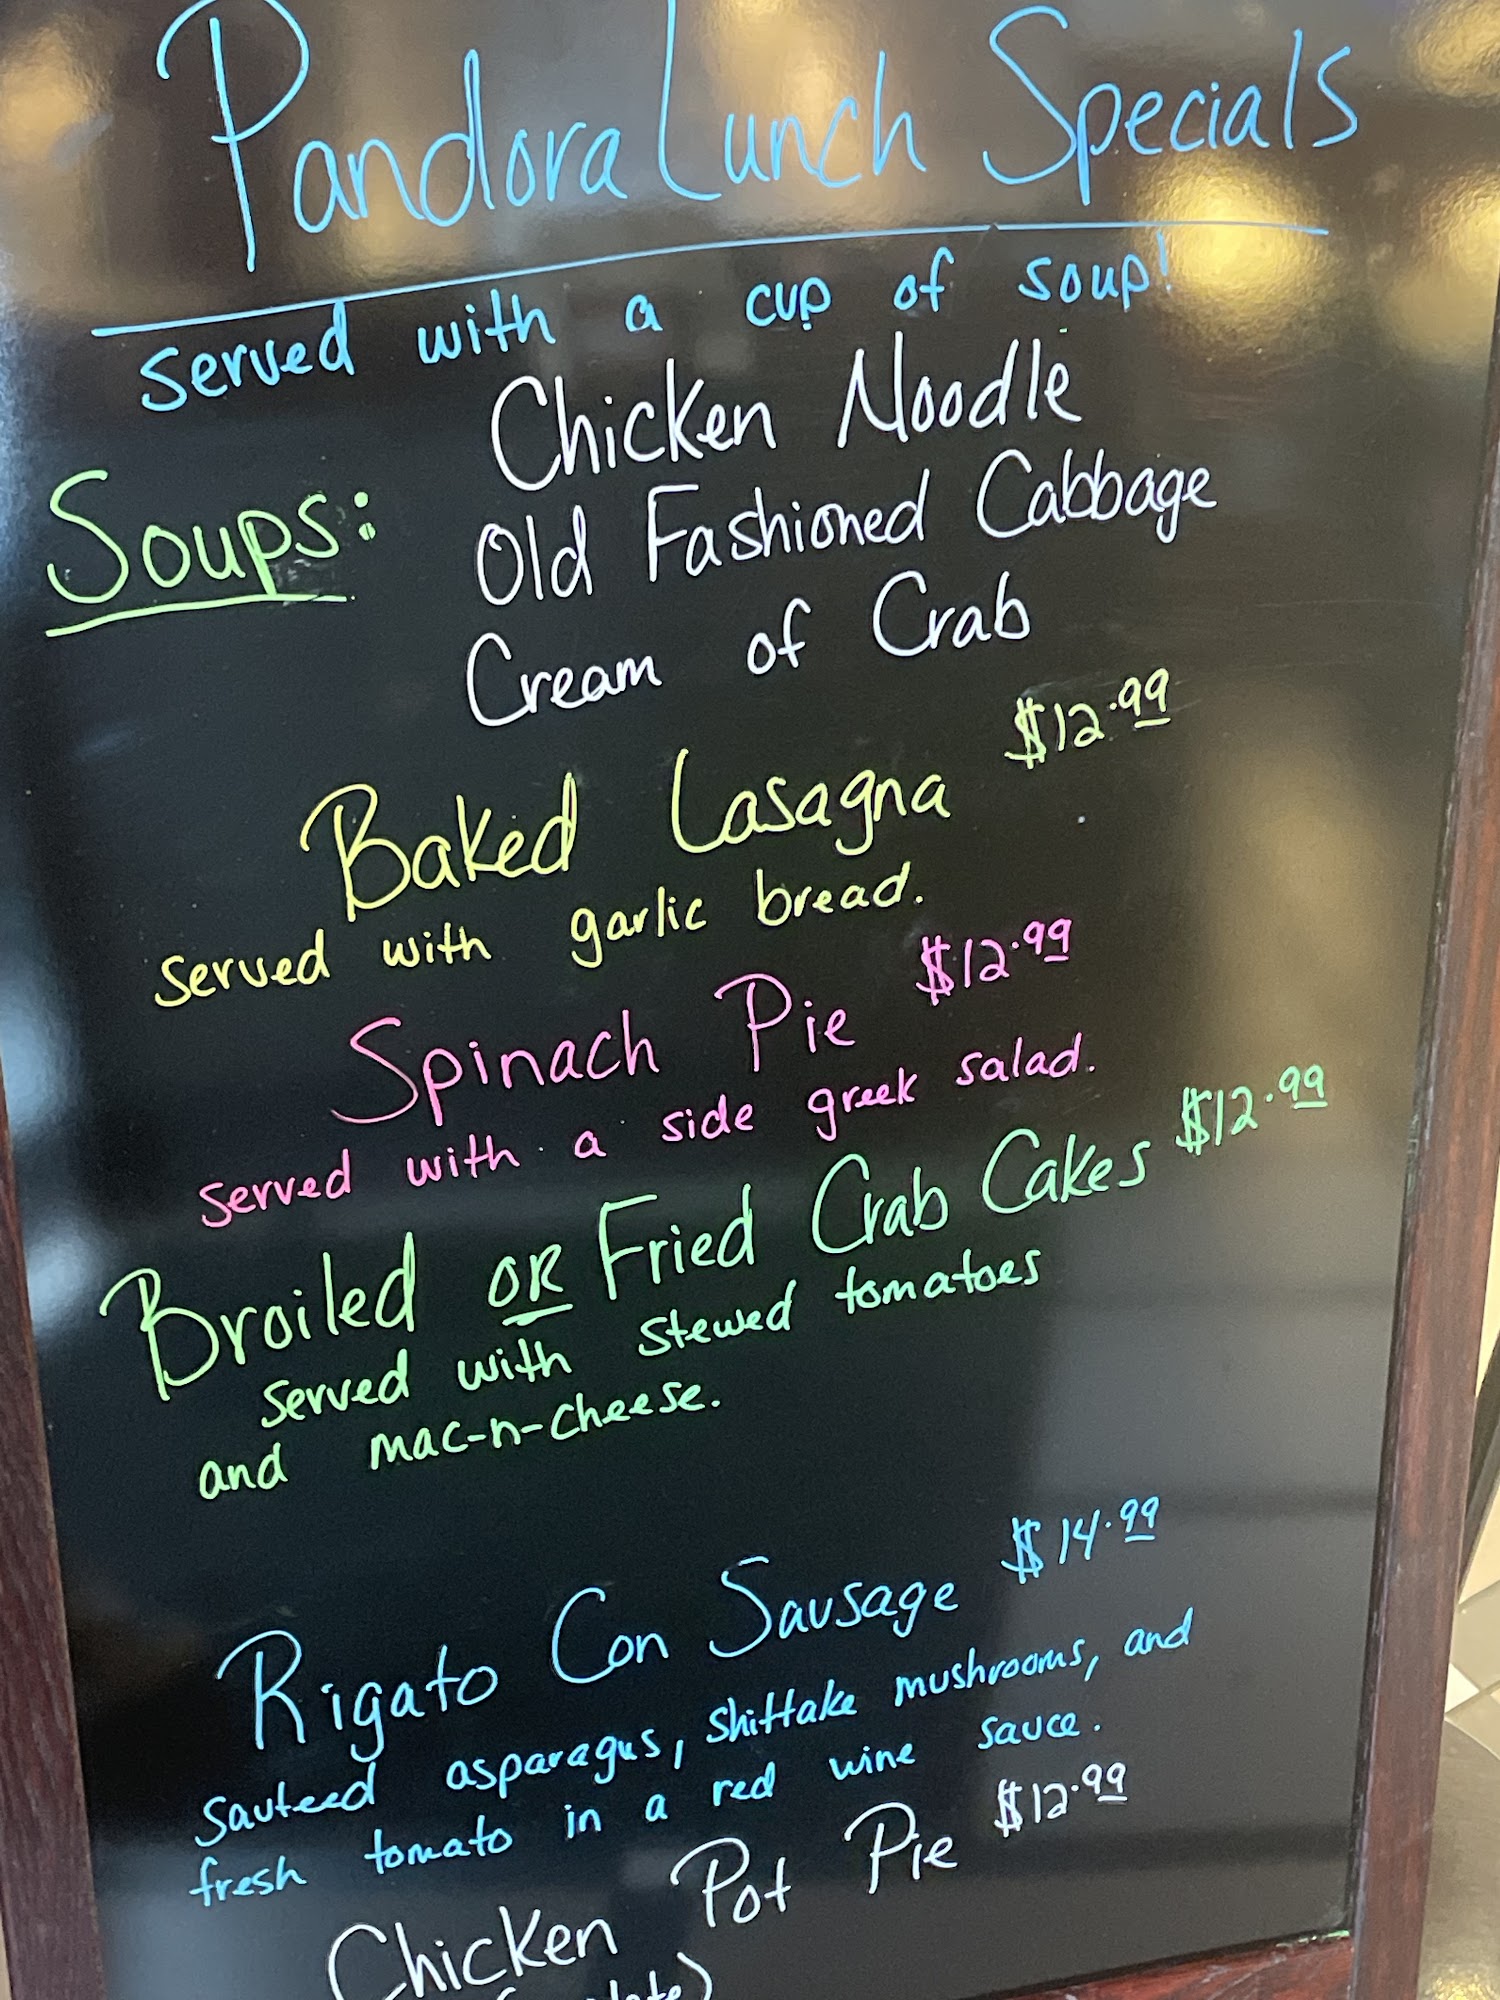 Pandora Lunch Specials
served with a cup of soup!
Soups: Chicken Noodle
Old Fashioned Cabbage
Cream of Crab
Baked Lasagna $12.99
served with garlic bread.
Spinach Pie $12.99
served with a side greek salad.
Broiled OR Fried Crab Cakes $12.99
served with stewed tomatoes
and mac-n-cheese.
Rigato Con Sausage $14.99
Sauteed asparagus, shittake mushrooms, and
fresh tomato in a red wine sauce.
Chicken Pot Pie $12.99